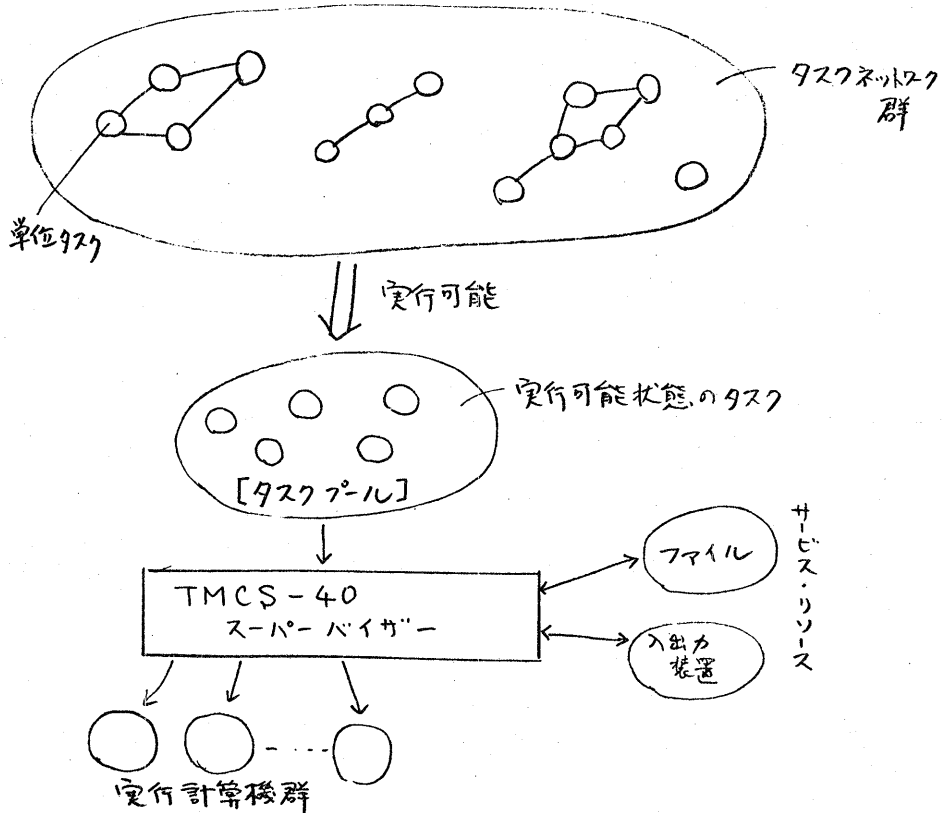 タスクネットワーク
群
単位タスク
実行可能
実行可能状態のタスク
[タスクプール]
TMCS-40
スーパーバイザー
ファイル
入出力
装置
サービス・リソース
実行計算機群